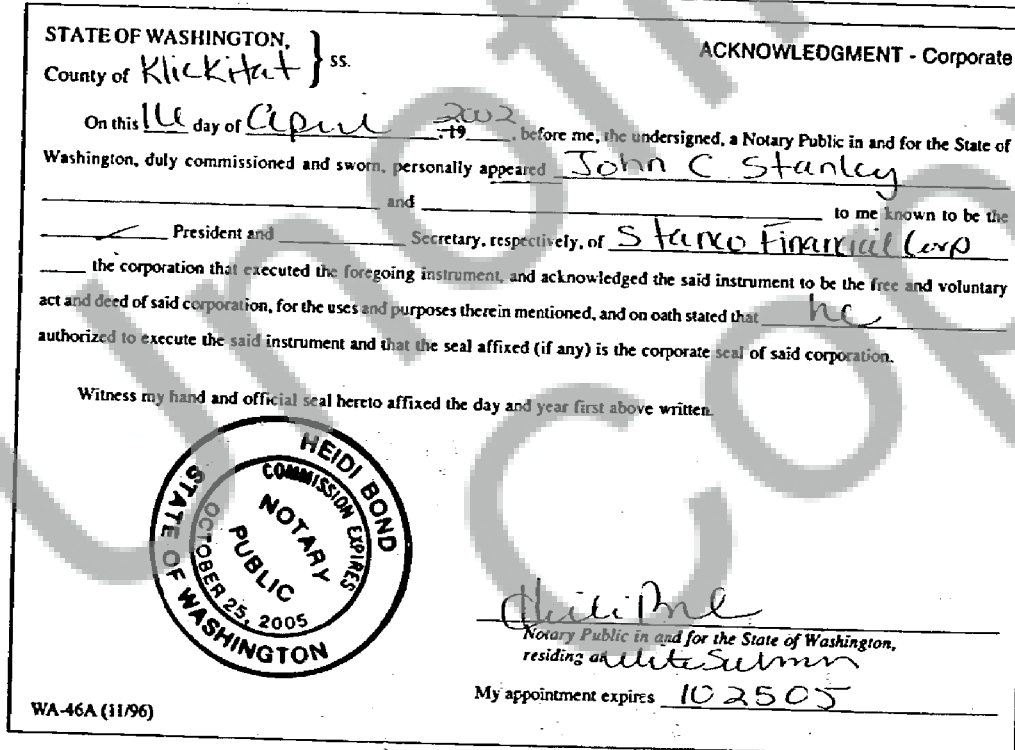 STATE OF WASHINGTON, } ss.
ACKNOWLEDGMENT - Corporate
County of Klickitat
On this 16 day of April 2002 19 , before me, the undersigned, a Notary Public in and for the State of
Washington, duly commissioned and sworn, personally appeared John C Stanley
and to me known to be the
President and Secretary, respectively, of Stanco Financial Corp
the corporation that executed the foregoing instrument, and acknowledged the said instrument to be the free and voluntary
act and deed of said corporation, for the uses and purposes therein mentioned, and on oath stated that he
authorized to execute the said instrument and that the seal affixed (if any) is the corporate seal of said corporation.
Witness my hand and official seal hereto affixed the day and year first above written.
HEIDI BOND
STATE OF WASHINGTON
COMMISSION EXPIRES
OCTOBER 25, 2005
NOTARY
PUBLIC
Heidi Bond
Notary Public in and for the State of Washington,
residing at White Salmon
My appointment expires 102505
WA-46A (11/96)